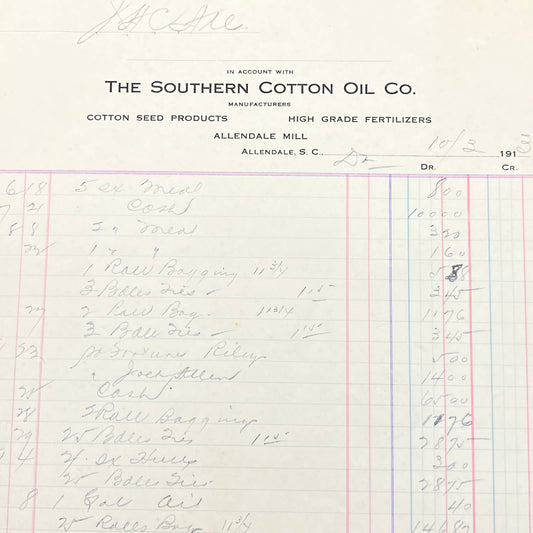 IN ACCOUNT WITH
THE SOUTHERN COTTON OIL CO.
MANUFACTURERS
COTTON SEED PRODUCTS HIGH GRADE FERTILIZERS
ALLENDALE MILL
ALLENDALE, S. C., 10/2 191
DR. CR.
6 18 5 sx Meal 8 00
21 Cash 100 00
8 8 2 " Meal 3 20
1 " " 1 60
1 Roll Bagging 11 3/4 5 88
3 Bales Ties 1 15 3 45
27 2 Roll Bag 11 3/4 11 76
3 Bales Ties 1 15 3 45
Riley 5 00
Allen 14 00
Cash 65 00
28 2 Roll Bagging 11 76
29 25 Bales Ties 1 15 28 75
4 sx 3 00
25 Bales Ties 28 75
8 1 Gal Oil 40
25 Rolls Bag 11 3/4 146 87